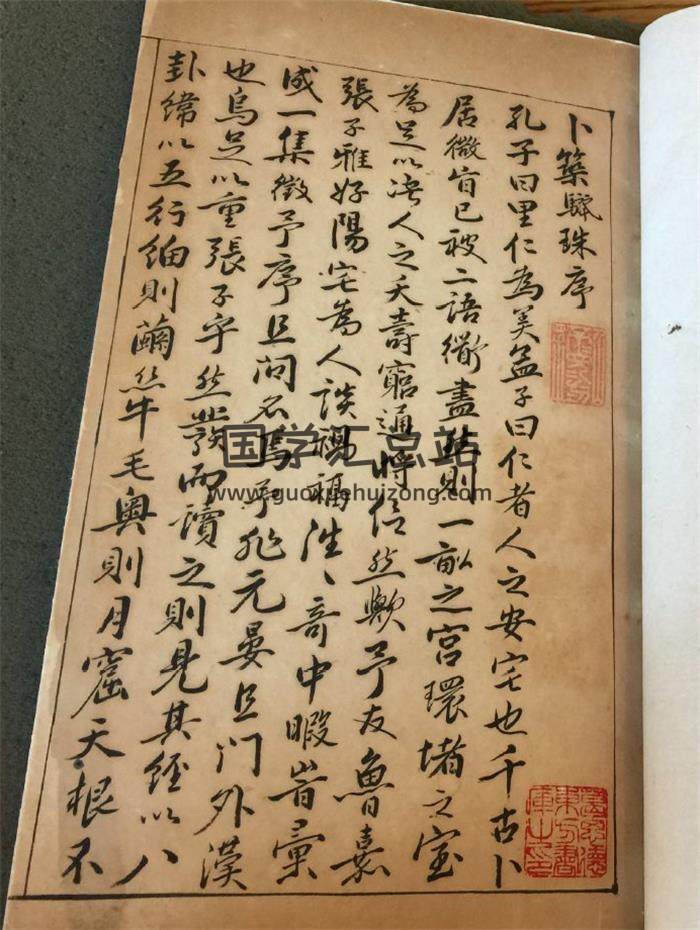 卜築驪珠序
孔子曰里仁為美孟子曰仁者人之安宅也千古卜
居微旨已被二語衢盡然則一畝之宮環堵之室
為足以決人之夭壽窮通將信然歟予友魯嘉
張子雅好陽宅為人談禍福往〻奇中暇昔彙
成一集徵予序且問名焉予非元晏且門外漢
也烏足以重張子乎然嘗而讀之則見其經以八
卦緯以五行細則繭絲牛毛奧則月窟天根不
国学汇总站
www.guoxuehuizong.com